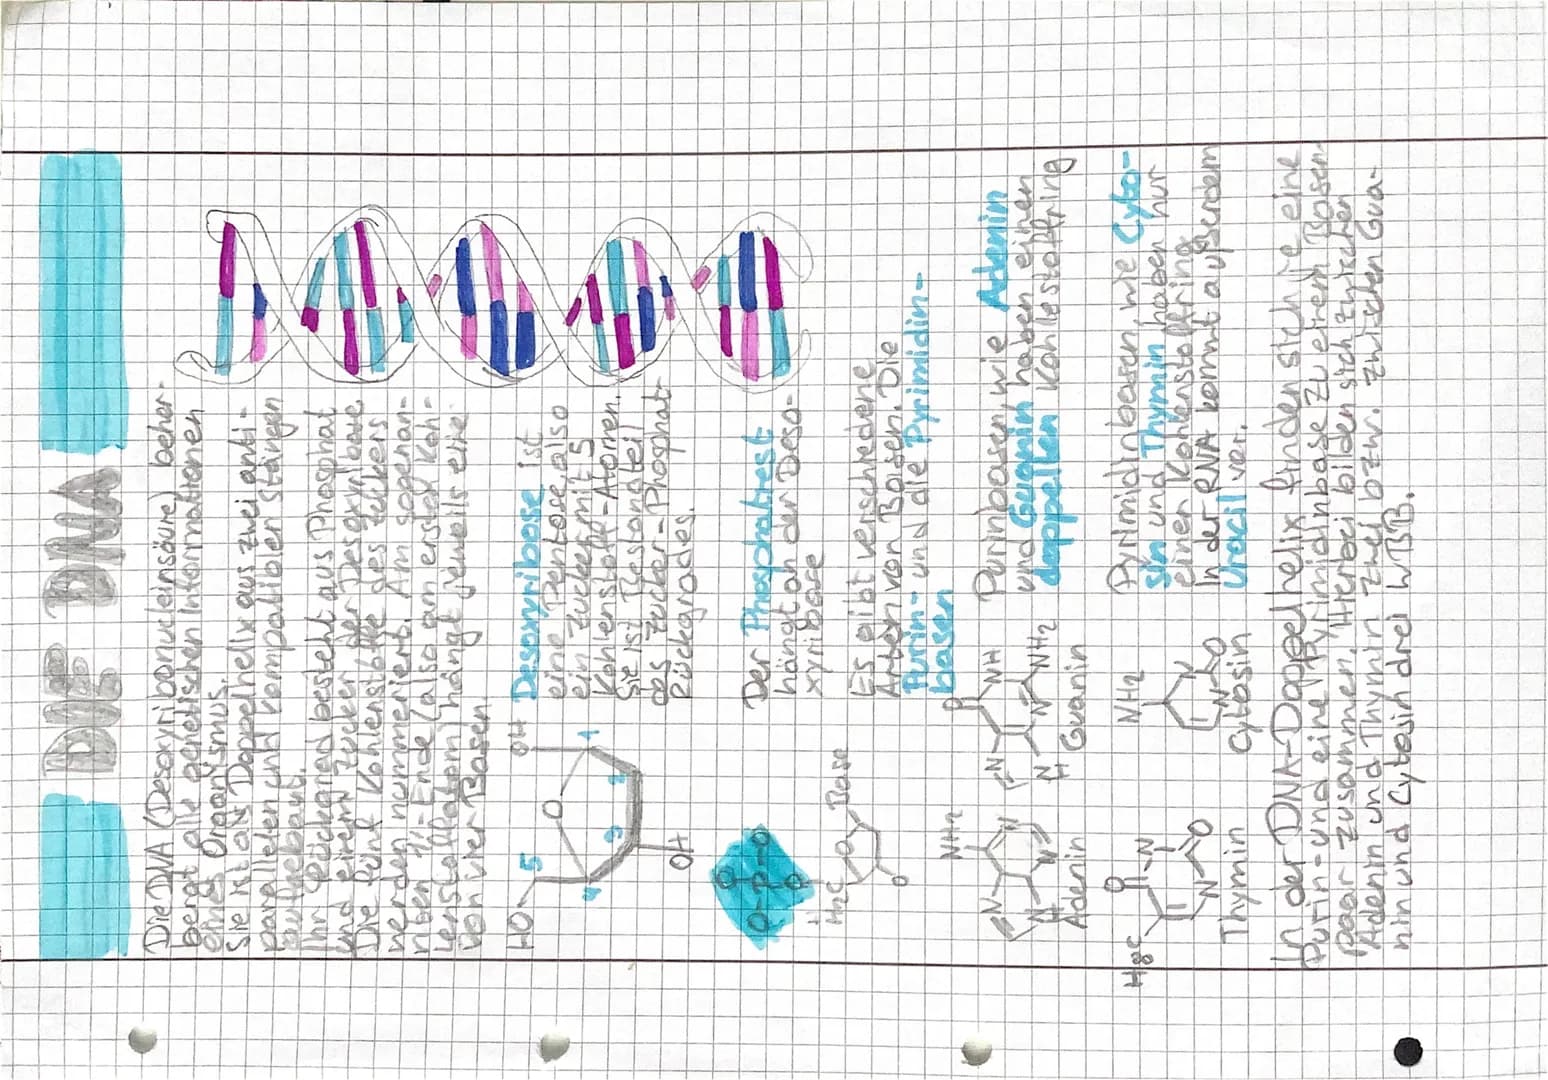 DIE DNA
Die DNA (Desoxyribonucleinsäure) beher-
bergt alle genetischen Informationen
eines Organismus.
Sie ist als Doppelhelix aus zwei anti-
parallelen und kompatiblen Strängen
aufgebaut.
Ihr Rückgrad besteht aus Phosphat
und einem Zucker der Desoxyribose
Die fünf Kohlenstoffe des Zuckers
werden nummeriert. Am sogenan-
nten 1'-Ende (also am ersten Koh-
lenstoffatom) hängt jeweils eine
von vier Basen
HO
5
OH
O
1
2
3
4
OH
Desoxyribose ist
eine Pentose also
ein Zucker mit 5
Kohlenstoff-Atomen.
Sie ist Bestandteil
des Zucker-Phosphat-
Rückgrades.
O
O-P-O
O
H2C
O
Base
O
Der Phosphatrest
hängt an der Deso-
xyribose
Es gibt verschiedene
Arten von Basen. Die
Purin- und die Pyrimidin-
basen
NH2
N
N
N
N
H
Adenin
O
N
NH
N
H
N
NH2
Guanin
Purinbasen wie Adenin
und Guanin haben einen
doppelten Kohlestoffring
O
H3C
N
N
O
Thymin
NH2
N
N
O
Cytosin
Pyrimidinbasen wie Cyto-
sin und Thymin haben nur
einen Kohlenstoffring
In der RNA kommt außerdem
Uracil vor.
In der DNA-Doppelhelix finden sich je eine
Purin- und eine Pyrimidinbase zu einem Basen-
paar zusammen. Hierbei bilden sich zwischen
Adenin und Thymin zwei bzw. zwischen Gua-
nin und Cytosin drei WSB.